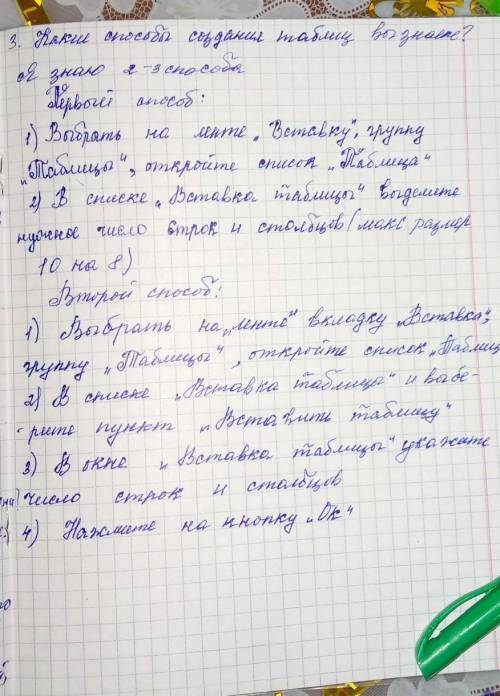 3. Какие способы создания таблиц вы знаете?
Я знаю 2-3 способа
Первый способ:
1) Выбрать на ленте „Вставку", группу
„Таблицы", откройте список „Таблица"
2) В списке „Вставка таблицы" выделите
нужное число строк и столбцов (макс размер
10 на 8)
Второй способ:
1) Выбрать на „ленте" вкладку „Вставка",
группу „Таблицы", откройте список „Таблиц
2) В списке „Вставка таблица" и выбе-
рите пункт „Вставить таблицу"
3) В окне „Вставка таблицы" укажите
число строк и столбцов
4) Нажмите на кнопку „Ок"